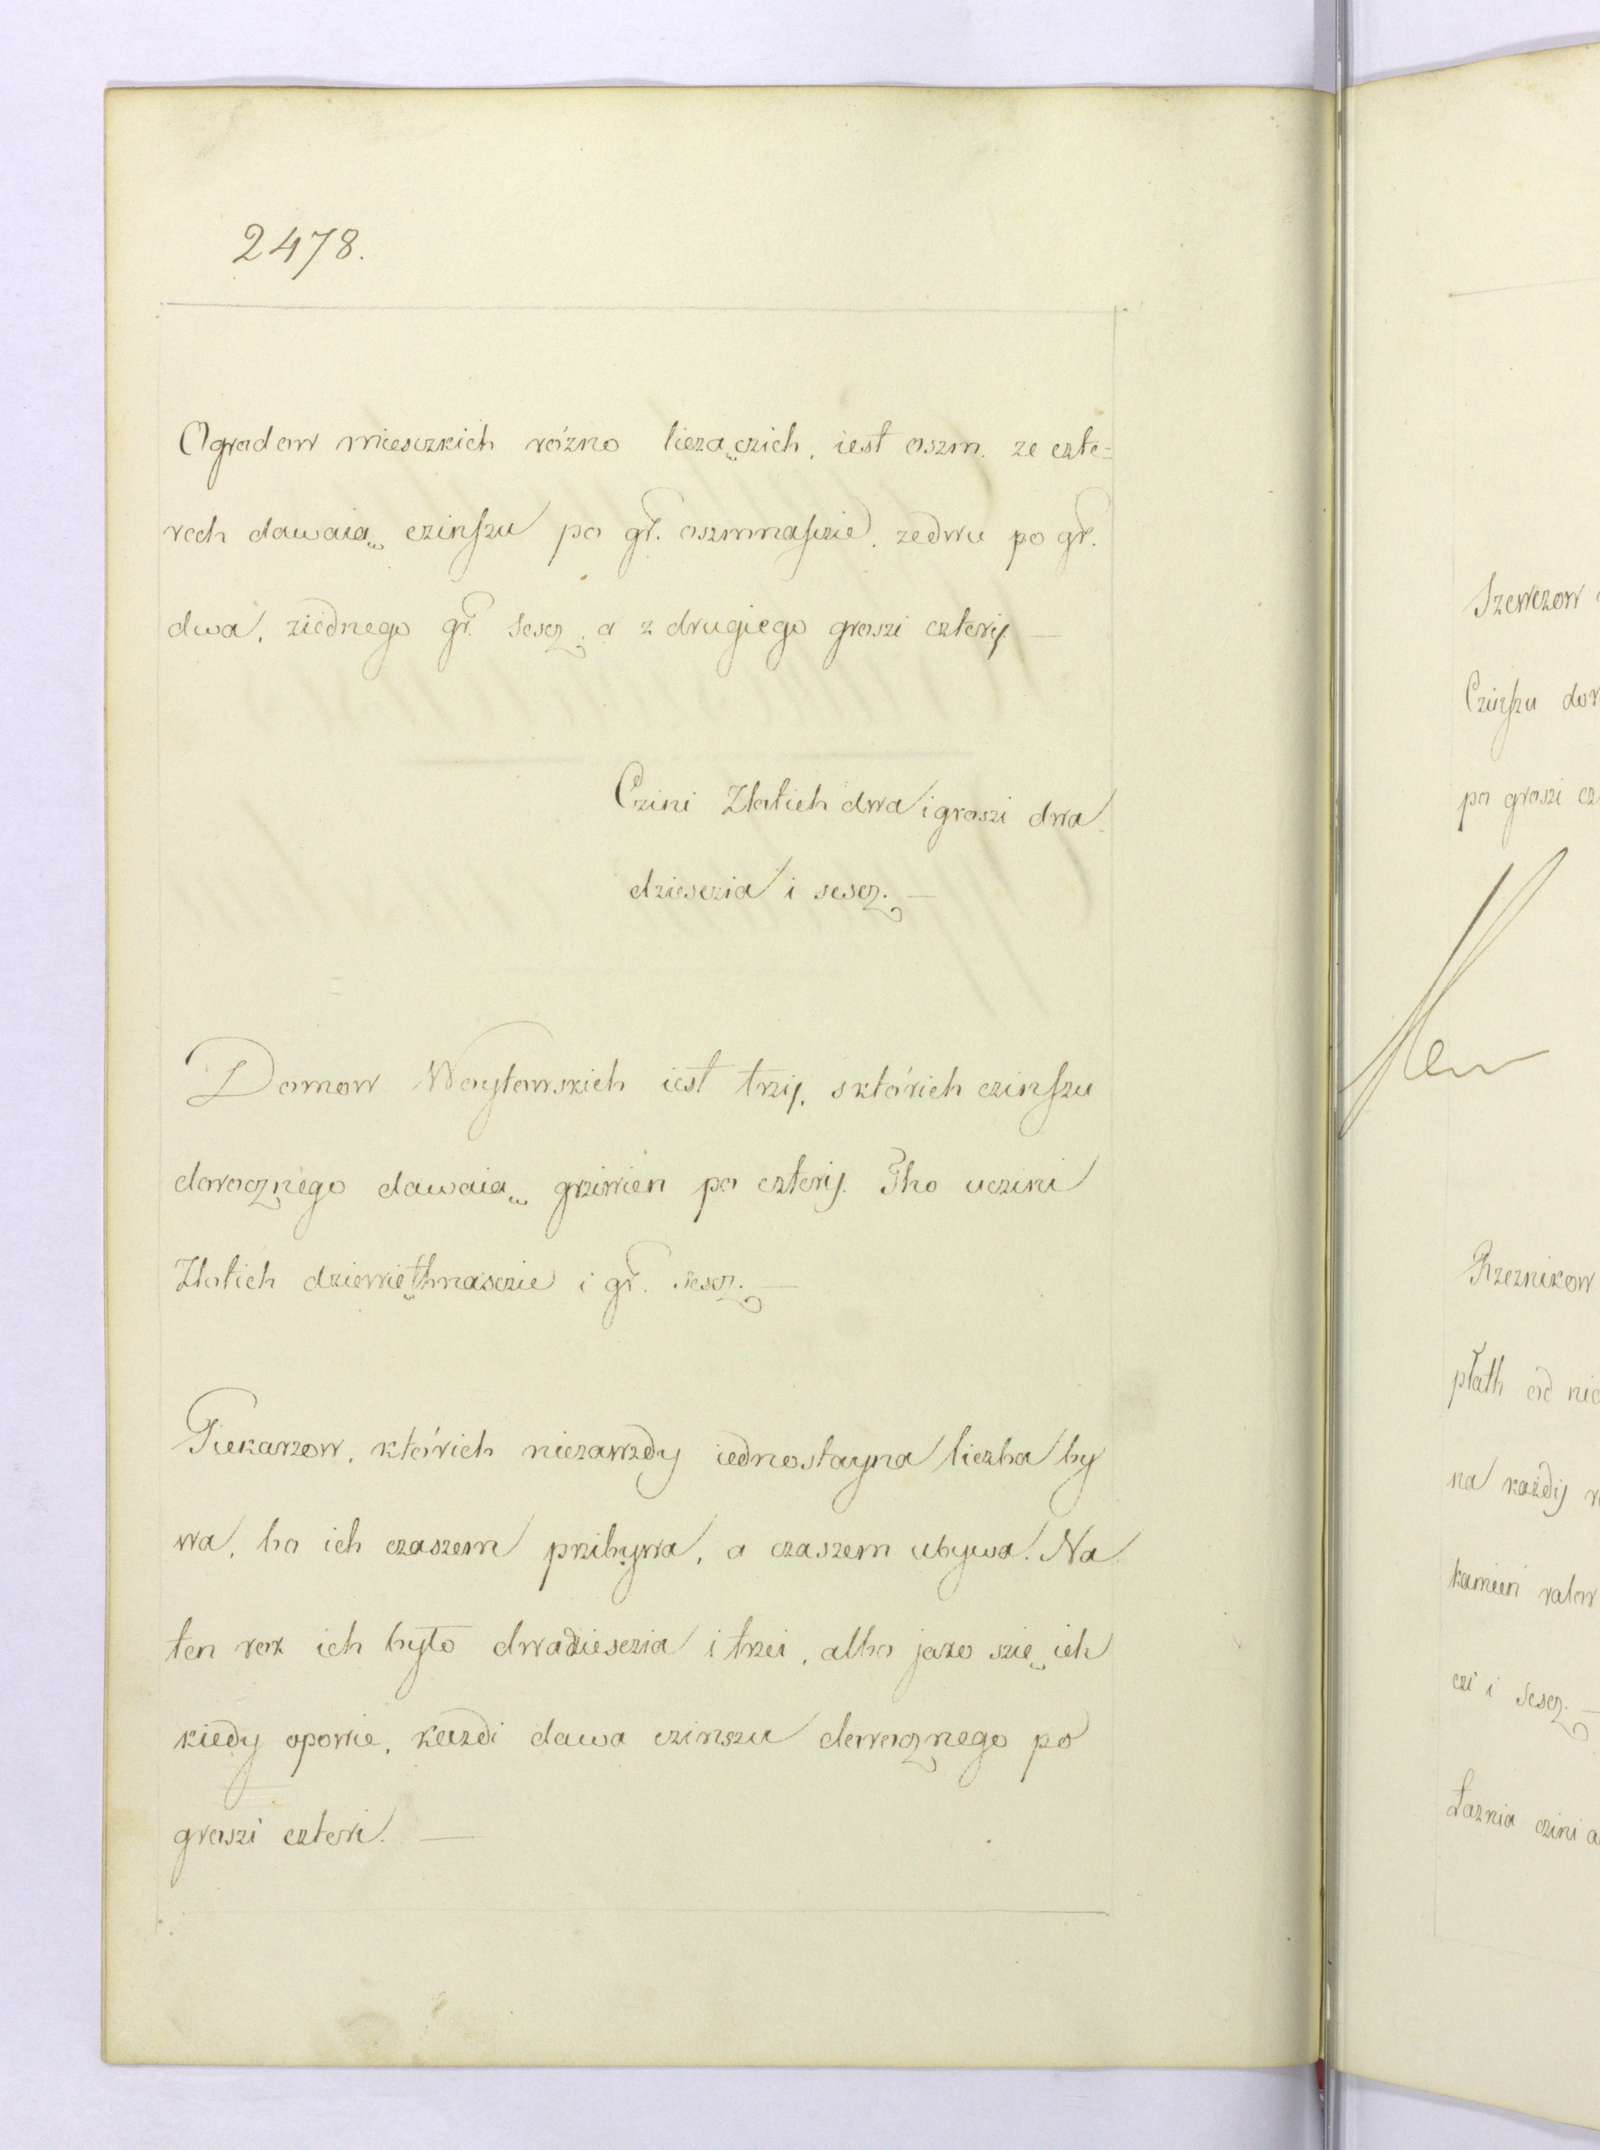 2478.
Ogrodow mieszkich rózno liezączich, iest oszm. ze czte-
rech dawaią czinszu po gr. oszmnaszie, zedwu po gr.
dwa, ziednego gr. sescz, a z drugiego groszi cztery —
Czini Złotich dwa i groszi dwa
dziesczia i sescz. —
Domow Woytowskich iest trzy, sktórich czinszu
dorocznego dawaią grziwien po cztery. Tho uczini
Złotich dziewięthnasczie i gr. sescz. —
Piekarzow, którich niezawzdy iednostayna liczba by
wa, bo ich czaszem przibywa, a czaszem ubywa. Na
ten rok ich było dwadziesczia i trzei, albo jako szię ich
kiedy opowie, kazdi dawa czinszu dorocznego po
groszi czteri. —
Szewczow
Czinszu dor
po groszi cz
Rzeznikow
płath od nic
na każdy
kamień
czi i sescz. —
Łaznia czini a